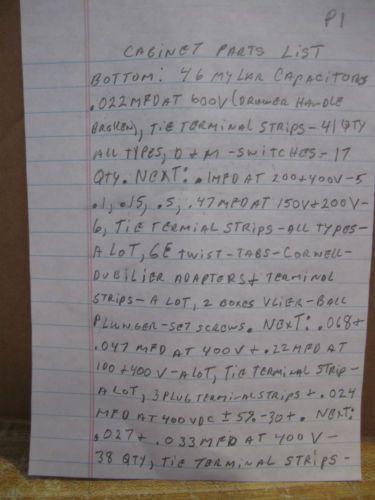 P1
CABINET PARTS LIST
BOTTOM: 46 MYLAR CAPACITORS
.022MFD AT 600V (DRAWER HANDLE
BROKEN), TIE TERMINAL STRIPS-41 QTY
ALL TYPES, D+M-SWITCHES-17
QTY. NEXT: .1MFD AT 200+400V-5
.1, .15, .5, .47MFD AT 150V+200V-
6, TIE TERMIAL STRIPS-ALL TYPES-
A LOT, GE TWIST-TABS-CORNELL-
DUBILIER ADAPTERS+ TERMINAL
STRIPS-A LOT, 2 BOXES VLIER-BALL
PLUNGER-SET SCREWS. NEXT: .068+
.047 MFD AT 400V+.22MFD AT
100+400V-A LOT, TIE TERMINAL STRIP-
A LOT, 3 PLUG TERMINAL STRIPS+.024
MFD AT 400VDC ±5%-30+. NEXT:
.027+ .033MFD AT 400V-
38 QTY, TIE TERMINAL STRIPS-